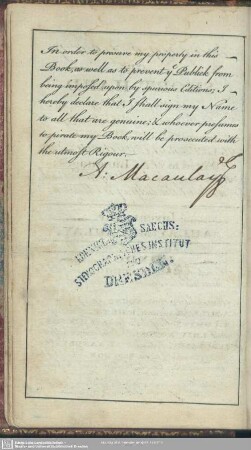 In order to secure my property in this
Book, as well as to prevent ye Publick from
being imposed upon by spurious Editions, I
hereby declare that I shall sign my Name
to all that are genuine; & whoever presumes
to pirate my Book, will be prosecuted with
the utmost Rigour.
A: Macaulay
SAECHS:
STENOGRAPHISCHES INSTITUT
DRESDEN.